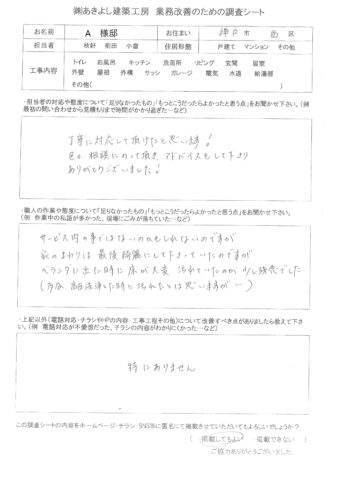 ㈱あきよし建築工房 業務改善のための調査シート
お名前 A 様邸 お住まい 神戸 市 西 区
担当者 秋好 前田 小倉 住居形態 戸建て マンション その他
工事内容 トイレ お風呂 キッチン 洗面所 リビング 玄関 居室
外壁 屋根 外構 サッシ ガレージ 電気 水道 給湯器
その他( )
・担当者の対応や態度について「足りなかったもの」「もっとこうだったらよかったと思う点」をお聞かせ下さい。(例
最初の問い合わせから見積もりまで時間がかかり過ぎた…など)
丁寧に対応して頂けたと思います!
色々相談にのって頂き、アドバイスもして下さり
ありがとうございました!
・職人の作業や態度について「足りなかったもの」「もっとこうだったらよかったと思う点」をお聞かせ下さい。
(例 作業中の私語が多かった、現場にごみが落ちていた…など)
サービス内の事ではないのかもしれないのですが
家のまわりは最後綺麗にして下さっていたのですが
ベランダに出た時に床が大変汚れていたのが少し残念でした
(多分、高圧洗浄した時と汚れたとは思いますが…)
・上記以外(電話対応・チラシやHPの内容・工事工程その他)について改善すべき点がありましたら教えて下さ
い。(例 電話対応が不愛想だった、チラシの内容がわかりにくかった…など)
特にありません
この調査シートの内容をホームページ・チラシ・SNS等に匿名にて掲載させていただいてもよろしいでしょうか?
( 掲載してもよい 掲載できない )
ご協力ありがとうございました。